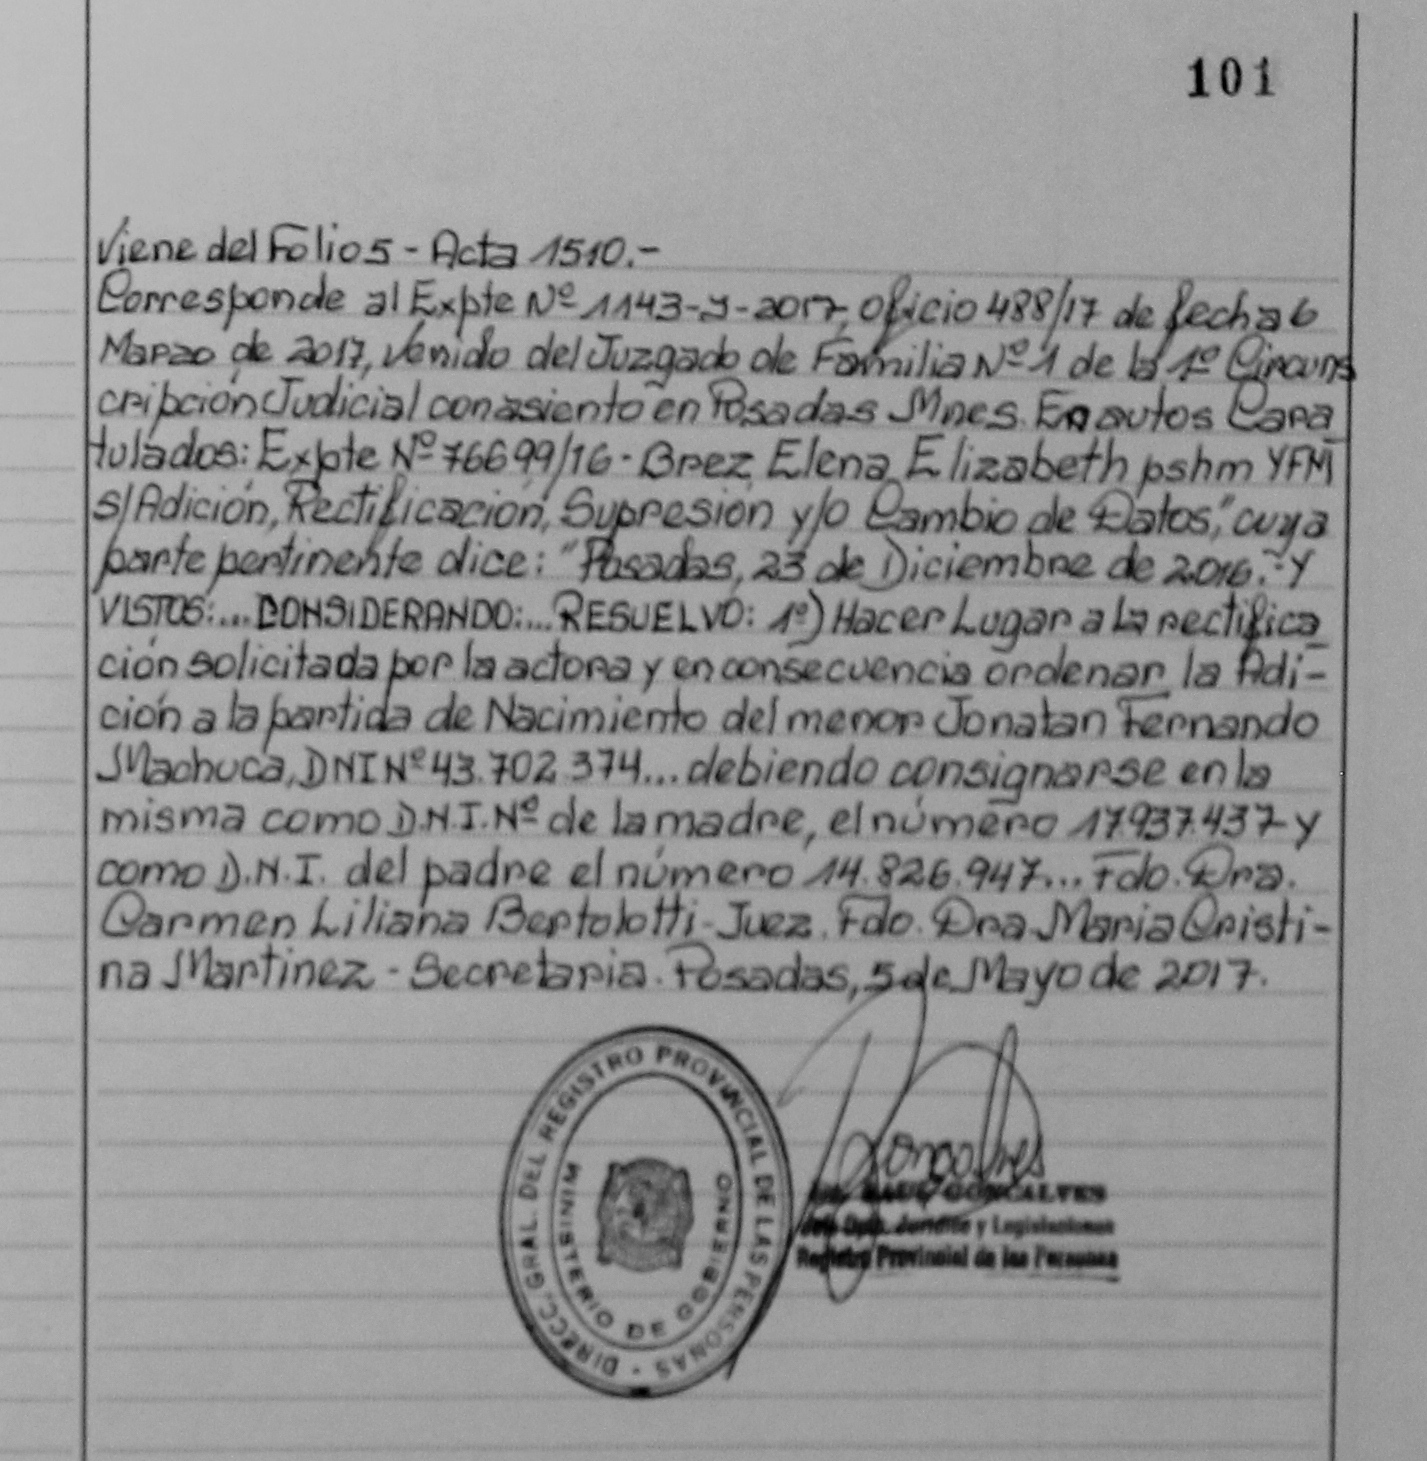 101
Viene del Folio 5 - Acta 1510.-
Corresponde al Expte Nº 1143-J-2017, oficio 488/17 de fecha 6
Marzo de 2017, venido del Juzgado de Familia Nº 1 de la 1º Circuns
cripción Judicial con asiento en Posadas Mnes. En autos Cara
tulados: Expte Nº 76699/16 - Brez Elena Elizabeth pshm YFM
s/Adición, Rectificación, Supresión y/o Cambio de Datos," cuya
parte pertinente dice: "Posadas, 23 de Diciembre de 2016.- Y
VISTOS:... CONSIDERANDO:... RESUELVO: 1º) Hacer Lugar a la rectifica
ción solicitada por la actora y en consecuencia ordenar la Adi-
ción a la partida de Nacimiento del menor Jonatan Fernando
Machuca, DNI Nº 43.702.374... debiendo consignarse en la
misma como D.N.I. Nº de la madre, el número 17.937.437 y
como D.N.I. del padre el número 14.826.947... Fdo. Dra.
Carmen Liliana Bertolotti - Juez. Fdo. Dra Maria Cristi-
na Martinez - Secretaria. Posadas, 5 de Mayo de 2017.
DIRECC. GRAL. DEL REGISTRO PROVINCIAL DE LAS PERSONAS -
MINISTERIO DE GOBIERNO
RAUL GONCALVES
Jefe Dpto. Jurídico y Legislaciones
Registro Provincial de las Personas